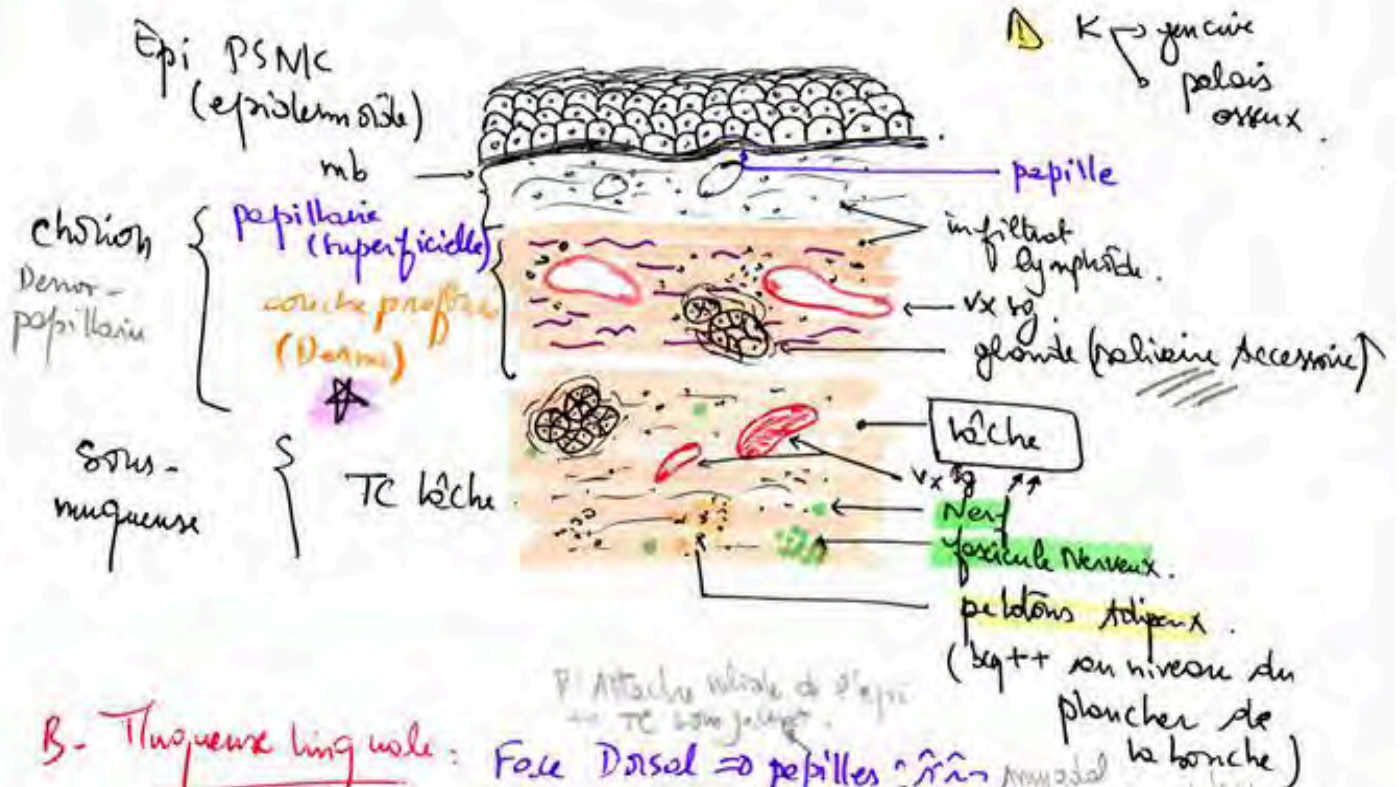 Epi PSMK
(epidermoïde)
mb
chorion
Dermo-
papillaire
papillaire
(superficielle)
couche profonde
(Derme)
Sous-
muqueuse
TC lâche.
K → gencive
palais
osseux.
papille
infiltrat
lymphoïde.
vx sg.
glande (salivaire Accessoire)
lâche
vx sg
Nerf
fascicule Nerveux.
pelotons Adipeux.
(bcq++ au niveau du
plancher de
la bouche)
TC
B- Muqueuse linguale: Face Dorsal => papilles: